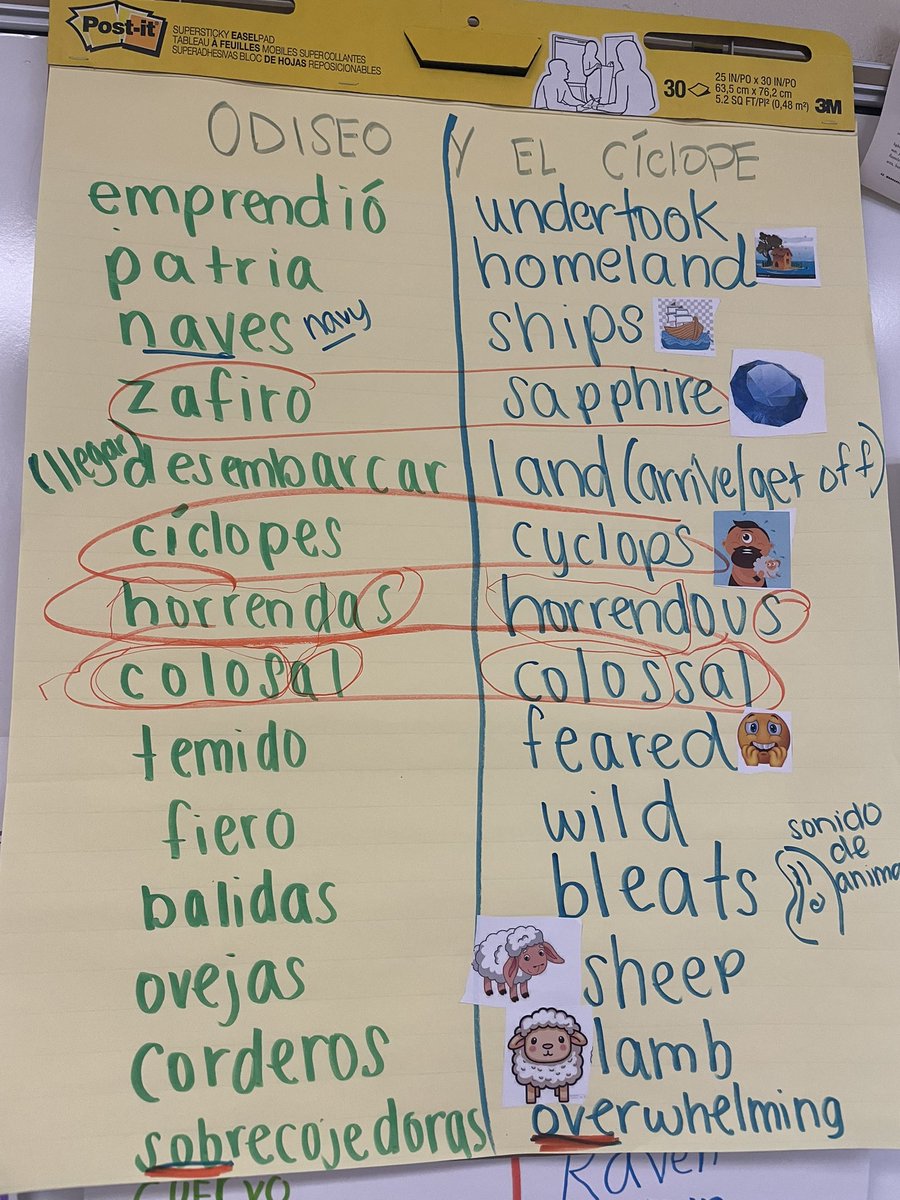 Post-it SUPERSTICKY EASEL PAD
TABLEAU À FEUILLES MOBILES SUPERCOLLANTES
SUPERADHESIVAS BLOC DE HOJAS REPOSICIONABLES
30
25 IN/PO x 30 IN/PO
63,5 cm x 76,2 cm
5.2 SQ FT/PI² (0,48 m²)
3M
ODISEO Y EL CÍCLOPE
emprendió undertook
patria homeland
naves navy ships
zafiro sapphire
(llegar) desembarcar land (arrive/get off)
cíclopes cyclops
horrendas horrendous
colosal colossal
temido feared
fiero wild
balidas bleats sonido de anima
ovejas sheep
corderos lamb
sobrecojedoras overwhelming
CUERVO Raven